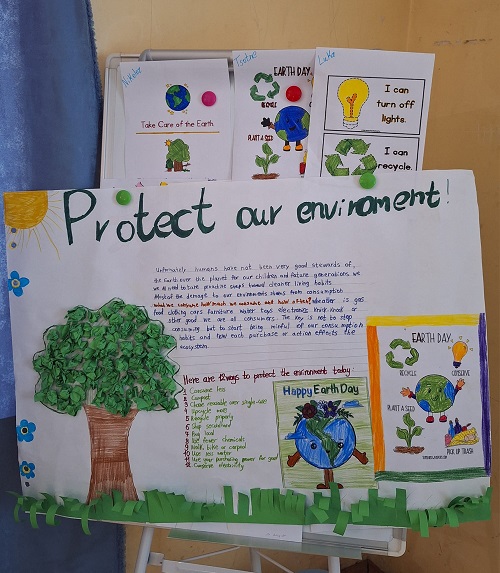 Tsotne
Luka
Take Care of the Earth
EARTH DAY
RECYCLE
PLANT A SEED
I can
turn off
lights.
I can
recycle.
Protect our enviroment!
humans have not been very good stewards of
the Earth over the planet for our children and future generations we
we need to take proactive steps toward cleaner living habits
Most of the damage to our environments stems from consumption
what we consume how much we consume and how often whether is gas
food clothing cars furniture water toys electronics knick knack or
other good we are all consumers. The key is not to stop
consuming but to start being mindful of our consumption
habits and how each purchase or action effects the
ecosystem.
Here are 12 ways to protect the environment today:
1 Consume less
2 Compost
3 Chose reusable over single-use
4 Upcycle more
5 Recycle properly
6 Shop secondhand
7 Buy local
8 Use fewer chemicals
9 Walk, bike or carpool
10 Use less water
11 Use your purchasing power for good
12 Conserve electricity
Happy Earth Day
EARTH DAY
RECYCLE
CONSERVE
PLANT A SEED
PICK UP TRASH